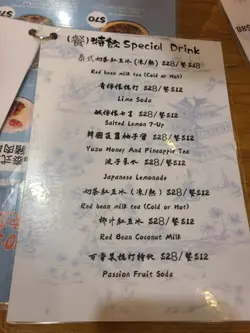 (餐)特飲 Special Drink
泰式奶茶紅豆冰 (凍/熱) $28/餐$18
Red bean milk tea (Cold or Hot)
青檸梳打 $28/餐$12
Lime Soda
鹹檸七 $28/餐$12
Salted Lemon 7-Up
韓國蜜柚子蜜 $28/餐$12
Yuzu Honey And Pineapple Tea
波子汽水 $28/餐$12
Japanese Lemonade
奶茶紅豆冰 (凍/熱) $28/餐$12
Red bean milk tea (Cold or Hot)
椰汁紅豆冰 $28/餐$12
Red Bean Coconut Milk
百香菓梳打特飲 $28/餐$12
Passion Fruit Soda